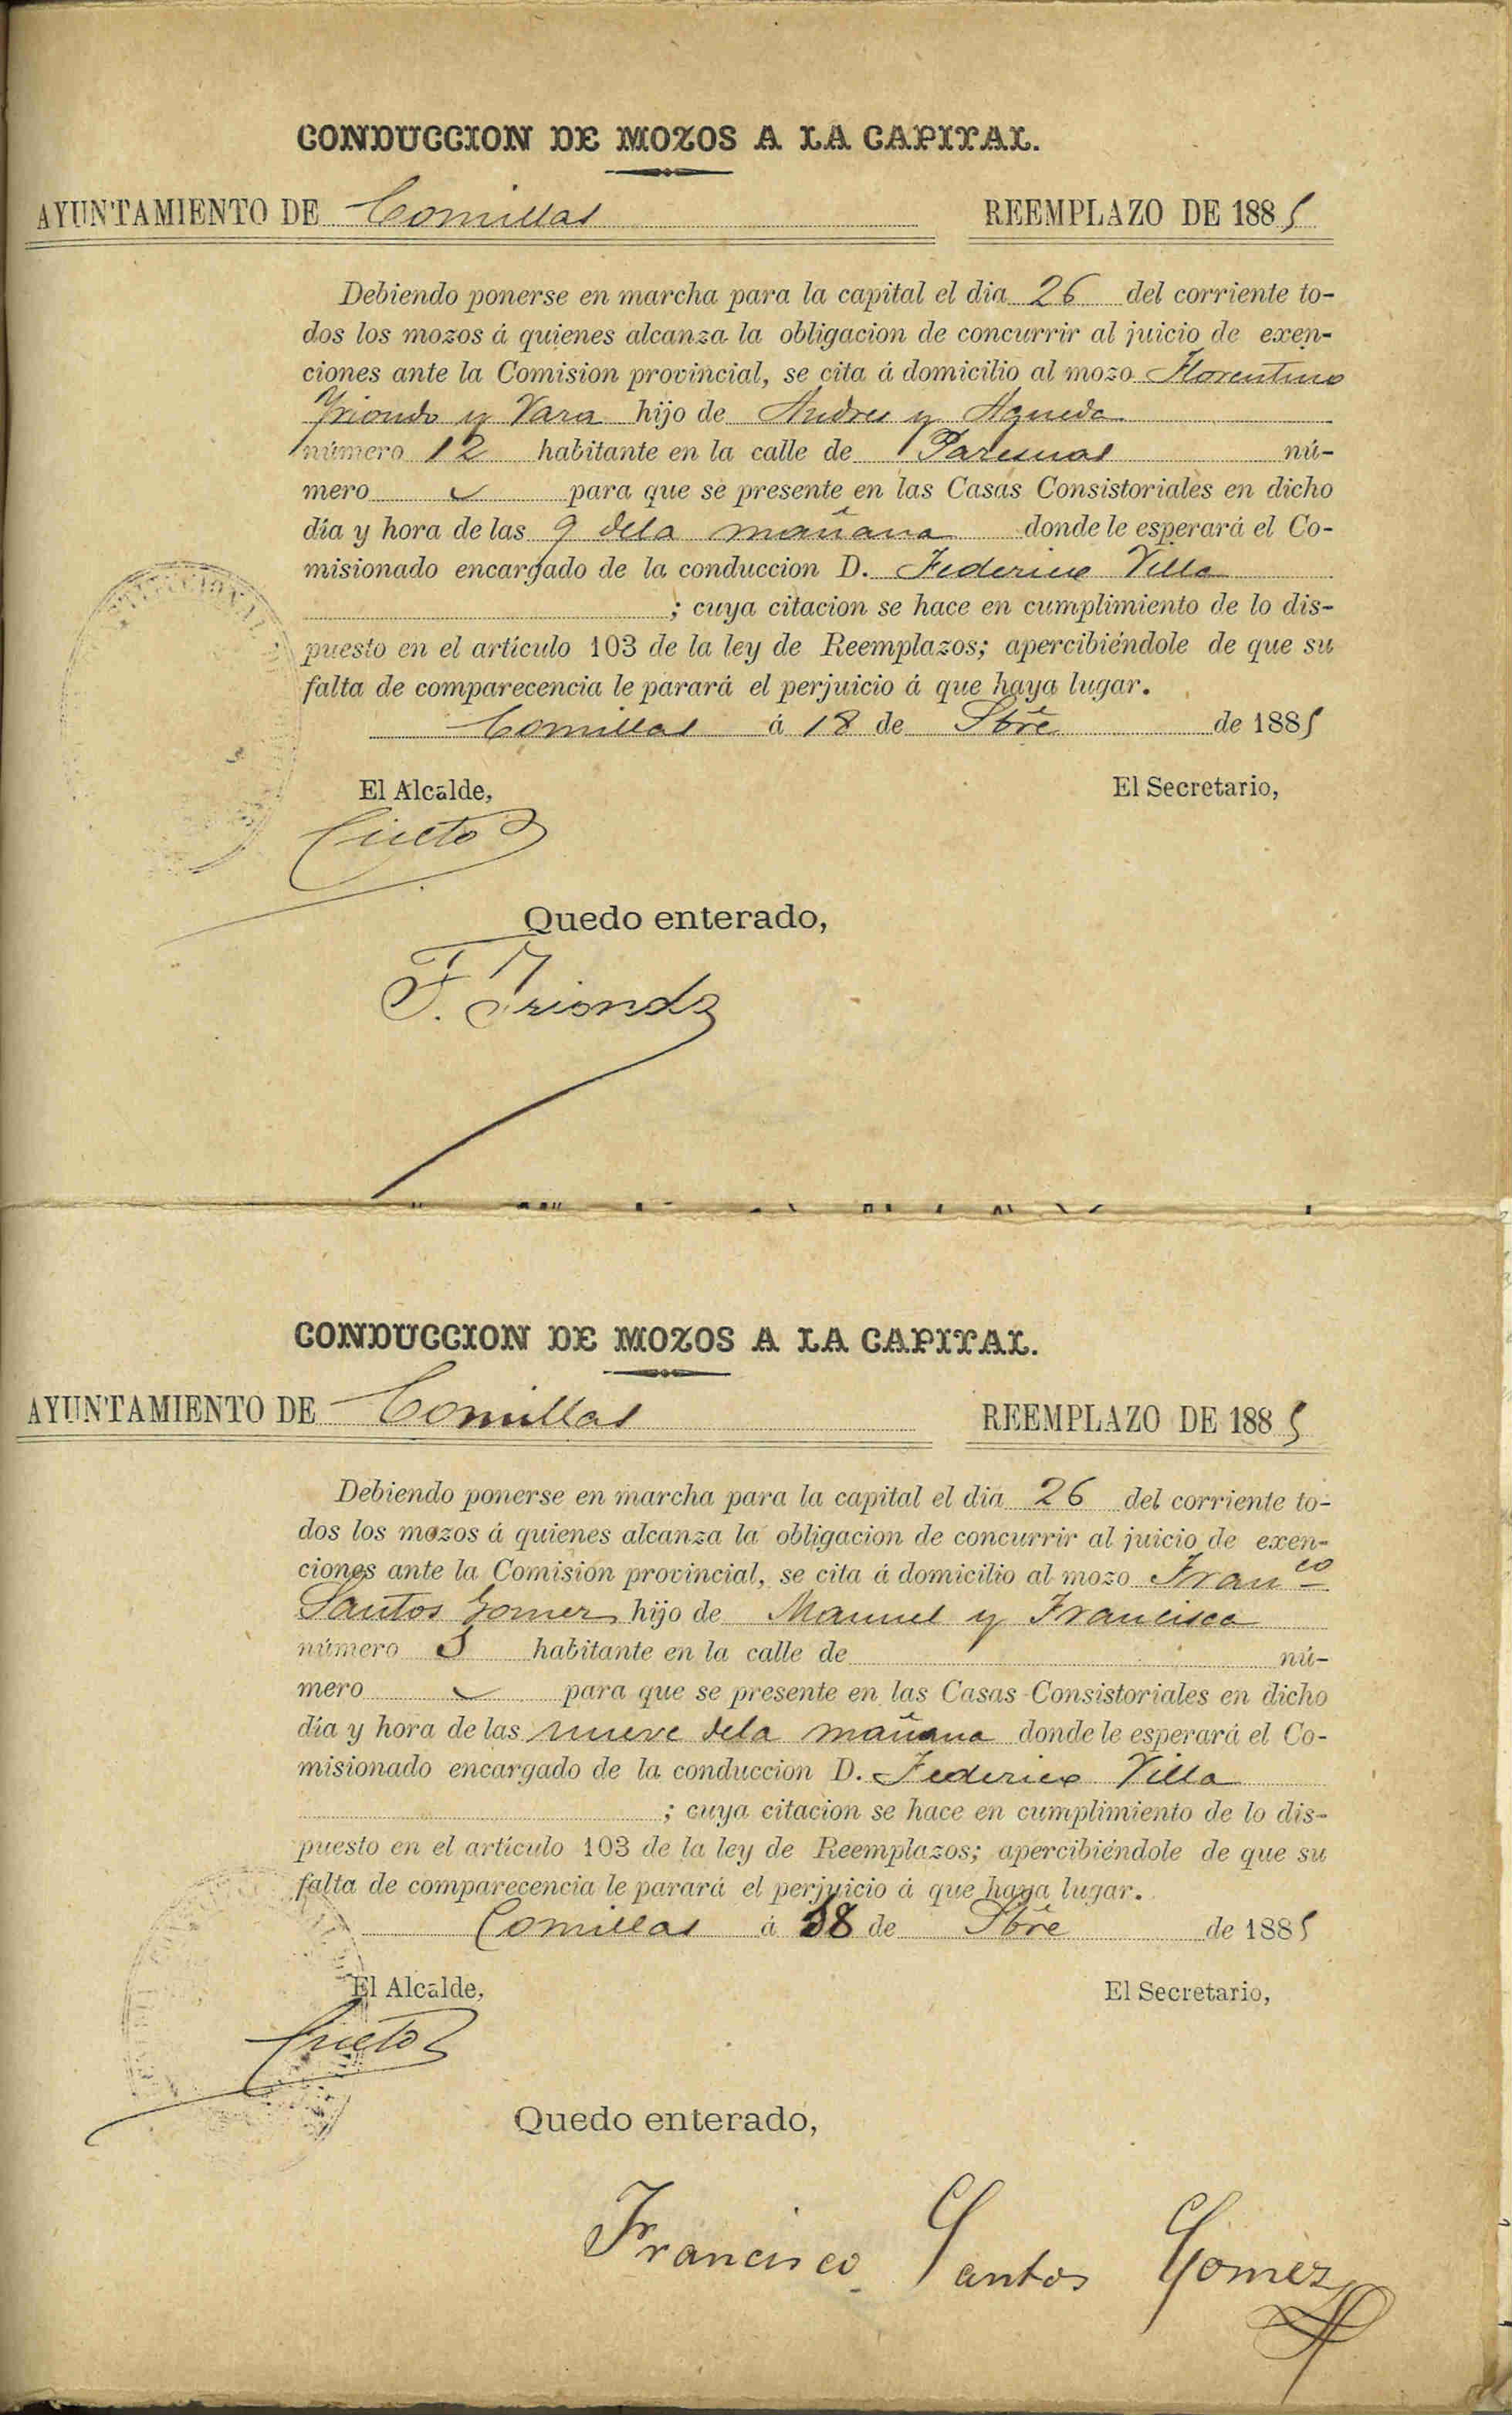 CONDUCCION DE MOZOS A LA CAPITAL.
AYUNTAMIENTO DE Comillas REEMPLAZO DE 1885
Debiendo ponerse en marcha para la capital el dia 26 del corriente to-
dos los mozos á quienes alcanza la obligacion de concurrir al juicio de exen-
ciones ante la Comision provincial, se cita á domicilio al mozo Florentino
Yriondo y Vara hijo de Andres y Agueda
número 12 habitante en la calle de nú-
mero para que se presente en las Casas Consistoriales en dicho
día y hora de las 9 dela mañana donde le esperará el Co-
misionado encargado de la conduccion D. Federico Villa
; cuya citacion se hace en cumplimiento de lo dis-
puesto en el artículo 103 de la ley de Reemplazos; apercibiéndole de que su
falta de comparecencia le parará el perjuicio á que haya lugar.
Comillas á 18 de Sbre de 1885
El Alcalde, El Secretario,
Cueto
Quedo enterado,
F. Yriondo
CONDUCCION DE MOZOS A LA CAPITAL.
AYUNTAMIENTO DE Comillas REEMPLAZO DE 1885
Debiendo ponerse en marcha para la capital el dia 26 del corriente to-
dos los mozos á quienes alcanza la obligacion de concurrir al juicio de exen-
ciones ante la Comision provincial, se cita á domicilio al mozo Franco
Santos Gomez hijo de Manuel y Francisca
número 5 habitante en la calle de nú-
mero para que se presente en las Casas Consistoriales en dicho
día y hora de las nueve dela mañana donde le esperará el Co-
misionado encargado de la conduccion D. Federico Villa
; cuya citacion se hace en cumplimiento de lo dis-
puesto en el artículo 103 de la ley de Reemplazos; apercibiéndole de que su
falta de comparecencia le parará el perjuicio á que haya lugar.
Comillas á 18 de Sbre de 1885
El Alcalde, El Secretario,
Cueto
Quedo enterado,
Francisco Santos Gomez